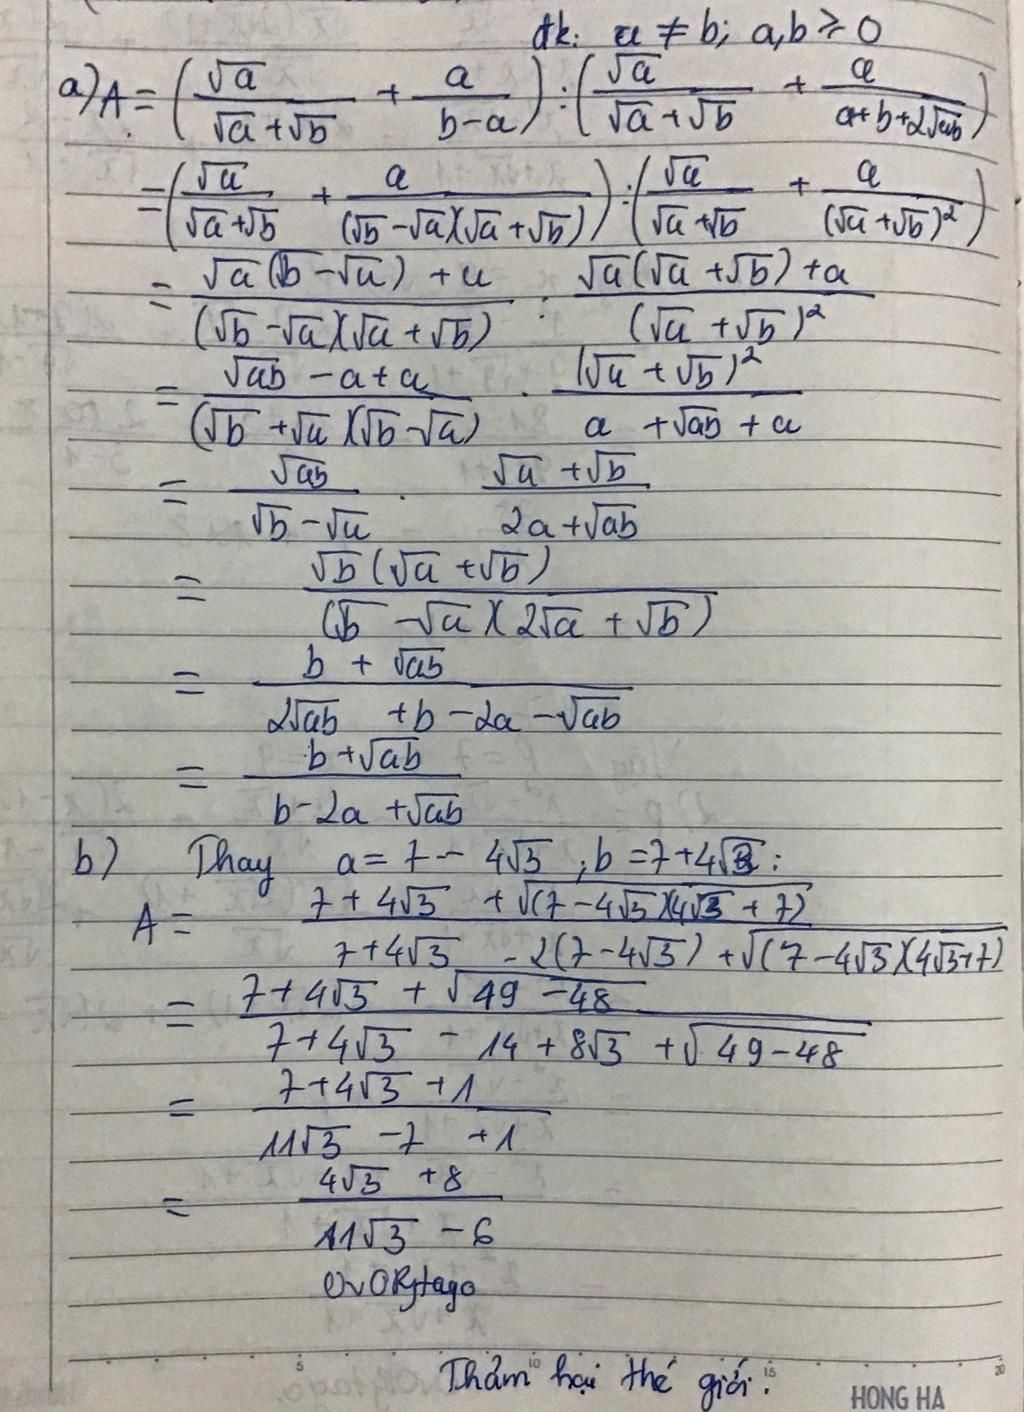 đk: a ≠ b; a,b ≥ 0
a) A = (√a/(√a+√b) + a/(b-a)) : (√a/(√a+√b) + a/(a+b+2√ab))
= (√a/(√a+√b) + a/((√b-√a)(√a+√b))) : (√a/(√a+√b) + a/(√a+√b)²)
= (√a(√b-√a)+a)/((√b-√a)(√a+√b)) : (√a(√a+√b)+a)/(√a+√b)²
= (√ab-a+a)/((√b+√a)(√b-√a)) . (√a+√b)²/(a+√ab+a)
= √ab/(√b-√a) . (√a+√b)/(2a+√ab)
= √b(√a+√b)/((√b-√a)(2√a+√b))
= (b+√ab)/(2√ab+b-2a-√ab)
= (b+√ab)/(b-2a+√ab)
b) Thay a = 7-4√3 ; b = 7+4√3 :
A = (7+4√3+√((7-4√3)(4√3+7)))/(7+4√3-2(7-4√3)+√((7-4√3)(4√3+7)))
= (7+4√3+√(49-48))/(7+4√3-14+8√3+√(49-48))
= (7+4√3+1)/(11√3-7+1)
= (4√3+8)/(11√3-6)
Thảm hại thế giới.
5 10 15 20
HONG HA